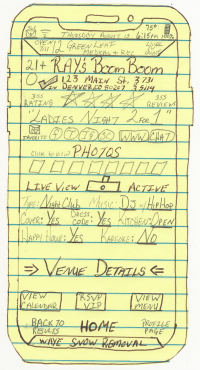 75°
THURSDAY AUGUST 13 4:15PM
OPEN TILL 12 GREEN LEAF
MEDICAL + REC
21+ RAY'S Boom Boom
123 MAIN ST. 3731
IN DENVER, CO 80207
353 RATING 353 REVIEWS
"LADIES NIGHT 2 FOR 1"
FAVORITE WWW CHAT
CLICK TO VIEW PHOTOS
LIVE VIEW ACTIVE
TYPE: NIGHT CLUB MUSIC: DJ HIP HOP
COVER: YES DRESS CODE: YES KITCHEN: OPEN
HAPPY HOUR: YES KARAOKE: NO
⇒ VENUE DETAILS ⇐
VIEW CALENDAR RSVP VIP VIEW MENU
BACK TO RESULTS HOME PROFILE PAGE
WAYE SNOW REMOVAL